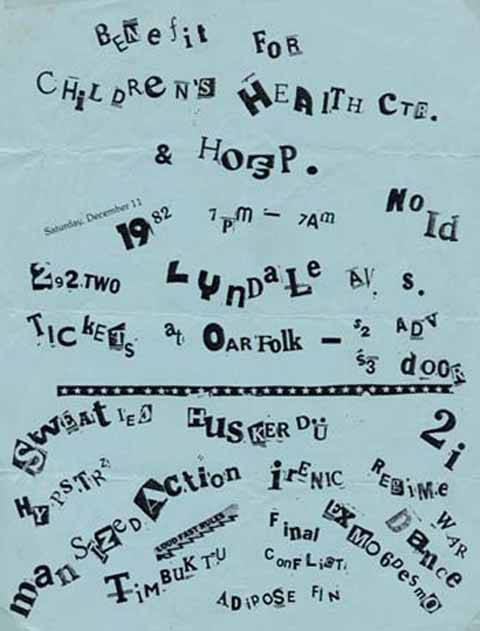 BENefit FOR
CHiLDReN'S HEAlTH CTR.
& HOSP.
Saturday, December 11
1982
7PM – 7AM
NO Id
292.TWO LynDaLe AV. S.
TICKETS at OARFolk – $2 ADV
$3 dooR
SWEAtIES HUSKER DÜ 2i
HYPSTRZ
man SIZED Action
irENIC REGIME
WAR Dance
LOUD FAST RULES
TiMBUKTU
Final ConfLiCT.
ADIPOSE FIN